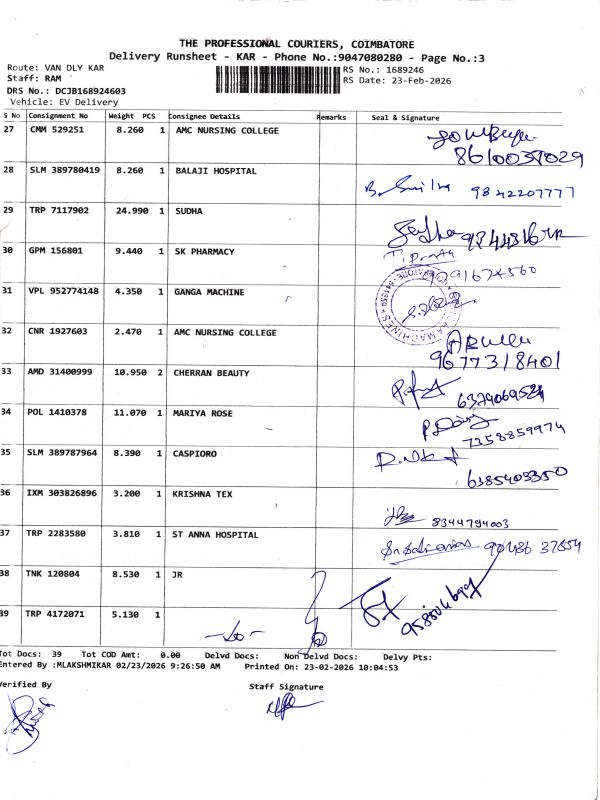 THE PROFESSIONAL COURIERS, COIMBATORE
Delivery Runsheet - KAR - Phone No.:9047080280 - Page No.:3
Route: VAN DLY KAR
RS No.: 1689246
Staff: RAM
RS Date: 23-Feb-2026
DRS No.: DCJB168924603
Vehicle: EV Delivery
S No Consignment No Weight PCS Consignee Details Remarks Seal & Signature
27 CMM 529251 8.260 1 AMC NURSING COLLEGE
8610037029
28 SLM 389780419 8.260 1 BALAJI HOSPITAL
9842207777
29 TRP 7117902 24.990 1 SUDHA
30 GPM 156801 9.440 1 SK PHARMACY
31 VPL 952774148 4.350 1 GANGA MACHINE
32 CNR 1927603 2.470 1 AMC NURSING COLLEGE
9677318401
33 AMD 31400999 10.950 2 CHERRAN BEAUTY
34 POL 1410378 11.070 1 MARIYA ROSE
7358859974
35 SLM 389787964 8.390 1 CASPIORO
6385403350
36 IXM 303826896 3.200 1 KRISHNA TEX
8344794003
37 TRP 2283580 3.810 1 ST ANNA HOSPITAL
38 TNK 120804 8.530 1 JR
39 TRP 4172071 5.130 1
Tot Docs: 39 Tot COD Amt: 0.00 Delvd Docs: Non Delvd Docs: Delvy Pts:
Entered By :MLAKSHMIKAR 02/23/2026 9:26:50 AM Printed On: 23-02-2026 10:04:53
Verified By Staff Signature